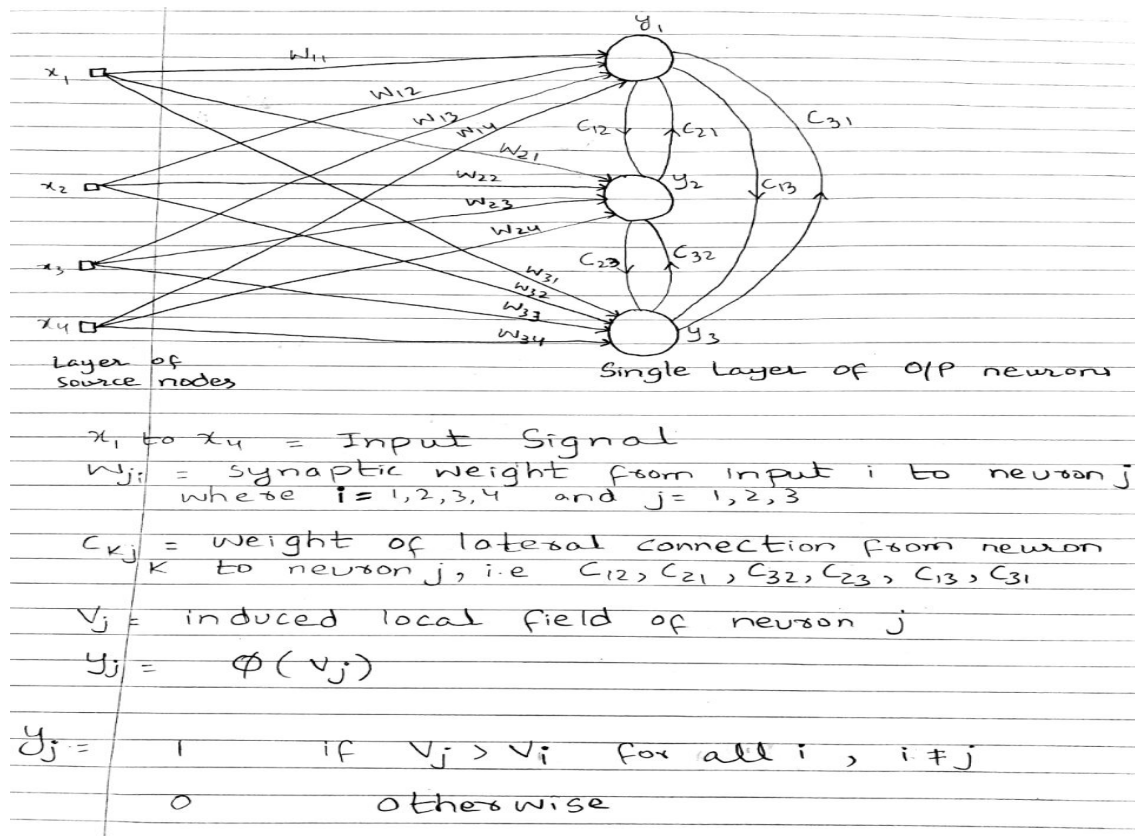 y₁
w₁₁
x₁
w₁₂
w₁₃
w₁₄
C₁₂
C₂₁
C₃₁
w₂₁
x₂
w₂₂
y₂
C₁₃
w₂₃
w₂₄
x₃
C₂₃
C₃₂
w₃₁
w₃₂
w₃₃
x₄
w₃₄
y₃
Layer of
source nodes
Single Layer of O/P neurons
x₁ to x₄ = Input Signal
Wⱼᵢ = synaptic weight from input i to neuron j
where i = 1,2,3,4 and j = 1,2,3
Cₖⱼ = weight of lateral connection from neuron
K to neuron j, i.e C₁₂, C₂₁, C₃₂, C₂₃, C₁₃, C₃₁
Vⱼ = induced local field of neuron j
yⱼ = ϕ(vⱼ)
yⱼ = 1 if Vⱼ > Vᵢ for all i, i ≠ j
0 otherwise